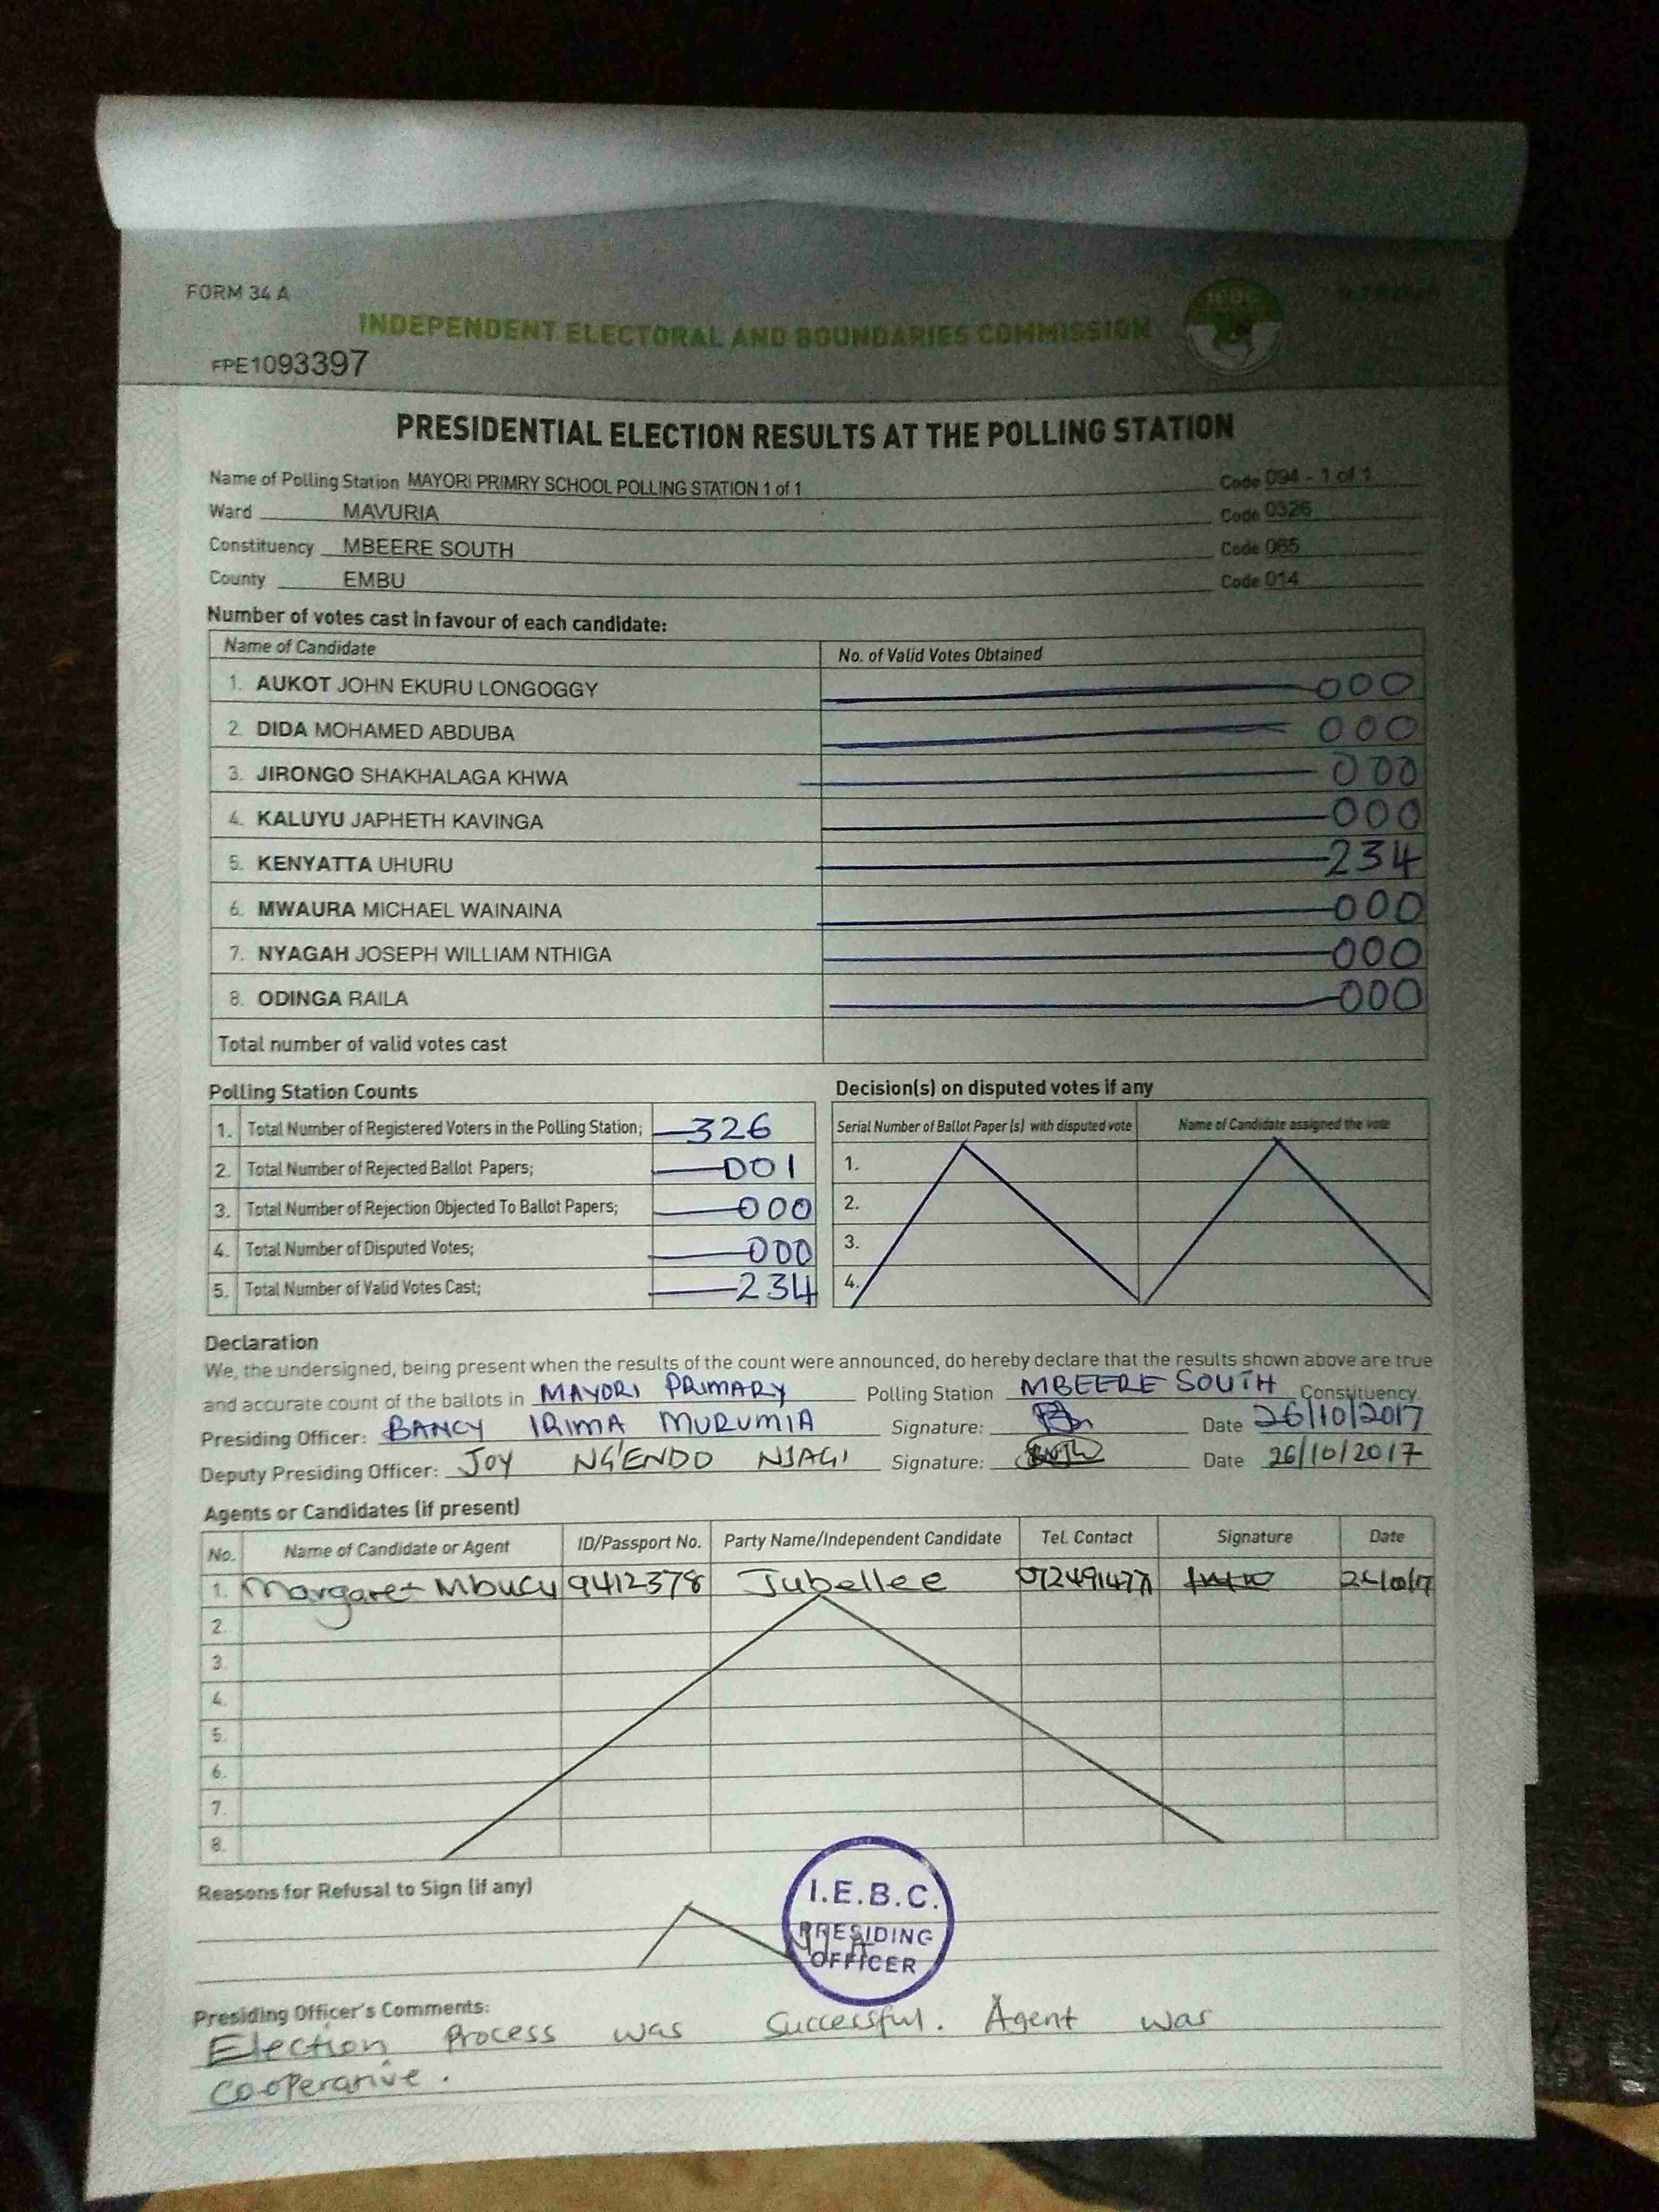 FORM 34 A
INDEPENDENT ELECTORAL AND BOUNDARIES COMMISSION
iebc
FPE1093397
PRESIDENTIAL ELECTION RESULTS AT THE POLLING STATION
Name of Polling Station MAYORI PRIMRY SCHOOL POLLING STATION 1 of 1 Code 094 - 1 of 1
Ward MAVURIA Code 0326
Constituency MBEERE SOUTH Code 065
County EMBU Code 014
Number of votes cast in favour of each candidate:
Name of Candidate No. of Valid Votes Obtained
1. AUKOT JOHN EKURU LONGOGGY 000
2. DIDA MOHAMED ABDUBA 000
3. JIRONGO SHAKHALAGA KHWA 000
4. KALUYU JAPHETH KAVINGA 000
5. KENYATTA UHURU 234
6. MWAURA MICHAEL WAINAINA 000
7. NYAGAH JOSEPH WILLIAM NTHIGA 000
8. ODINGA RAILA 000
Total number of valid votes cast
Polling Station Counts
1. Total Number of Registered Voters in the Polling Station; 326
2. Total Number of Rejected Ballot Papers; 001
3. Total Number of Rejection Objected To Ballot Papers; 000
4. Total Number of Disputed Votes; 000
5. Total Number of Valid Votes Cast; 234
Decision(s) on disputed votes if any
Serial Number of Ballot Paper (s) with disputed vote Name of Candidate assigned the vote
1.
2.
3.
4.
Declaration
We, the undersigned, being present when the results of the count were announced, do hereby declare that the results shown above are true
and accurate count of the ballots in MAYORI PRIMARY Polling Station MBEERE SOUTH Constituency.
Presiding Officer: BANCY IRIMA MURUMIA Signature: Date 26/10/2017
Deputy Presiding Officer: JOY NG'ENDO NJAGI Signature: Date 26/10/2017
Agents or Candidates (if present)
No. Name of Candidate or Agent ID/Passport No. Party Name/Independent Candidate Tel. Contact Signature Date
1. Margaret Mbucu 9412378 Jubellee
2.
3.
4.
5.
6.
7.
8.
Reasons for Refusal to Sign (if any)
N/A
I.E.B.C.
PRESIDING
OFFICER
Presiding Officer's Comments:
Election Process was Successful. Agent was
Cooperative.